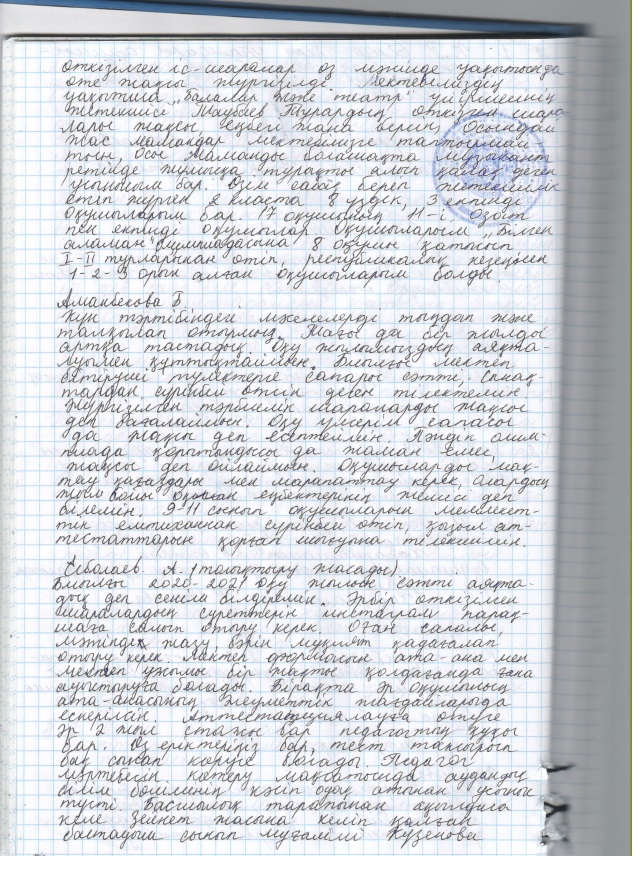 өткізілген іс-шаралар өз мәнінде уақытында
өте жақсы жүргізілді. Мектебіміздің
уақытша "Балалар және театр" үйірмесінің
жетекшісі Таубаев Нұрардың өткізген шара-
лары жақсы еңбегі жана берсін. Осындай
жас мамандар мектебімізге таптырмай-
тын, осы маманды болашақта музыкант
ретінде жұмысқа тұрақты алып қалақ деген
ұсынысым бар. Өзім сабақ беріп жетекшілік
етіп жүрген 2 класта 8 үздік, 3 екпінді
оқушыларым бар. 17 оқушының 11-і озат
пен екпінді оқушылар. Оқушыларым "Білген
аламан" олимпиадасына 8 оқушы қатысып
I-II турларынан өтіп, республикалық кезеңінен
1-2-3 орын алған оқушыларым болды.
Аманбекова Б.
Күн тәртібіндегі мәселелерді тыңдап және
талқылап отырмыз. Тағы да бір жылды
артқа тастадық. Оқу жылымыздың аяқта-
луымен құттықтаймын. Биылғы мектеп
бітіруші түлектерге сапары сәтті. Сынақ-
тардан сүрінбей өтсін деген тілектемін
Жүргізілген тәрбиелік шараларды жақсы
деп бағалаймын. Оқу үлгерім сапасы
да жақсы деп есептеймін. Пәндік олим-
пиада қорытындысы да жаман емес,
жақсы деп ойлаймын. Оқушыларды мақ-
тау қағаздары мен марапаттау керек, олардың
жыл бойы оқыған еңбектерінің жемісі деп
білемін. 9-11 сынып оқушыларын мемлекет-
тік емтиханнан сүрінбей өтіп, қызыл ат-
тестаттарын қорғап шығуына тілекшімін.
Есболаев. А. (толықтыру жасады)
Биылғы 2020-2021 оқу жылын сәтті аяқта-
дық деп сенім білдіремін. Әрбір өткізілген
шаралардың суреттерін инстаграм парақ-
шаға салып отыру керек. Оған сапалы,
мәтіндік жазу, бәрін мұқият қадағалап
отыру керек. Мектеп формасын ата-ана мен
мектеп ұжымы бір жақты қолдағанда ғана
ауыстыруға болады. Бірақта әр оқушының
ата-анасының әлеуметтік жағдайларыда
ескерілсін. Аттестациялауға өтуге
әр 2 жыл стажы бар педагогтың құқы
бар. Өз еріктеріңіз бар, тест тапсырып
бақ сынап көруге болады. Педагог
мәртебесін көтеру мақсатында аудандық
білім бөлімінің кәсіп одақ атынан ұсыныс
түсті. Басшылық тарапынан ақылдаса
келе зейнет жасына келіп қалған
бастауыш сынып мұғалімі Күзенова